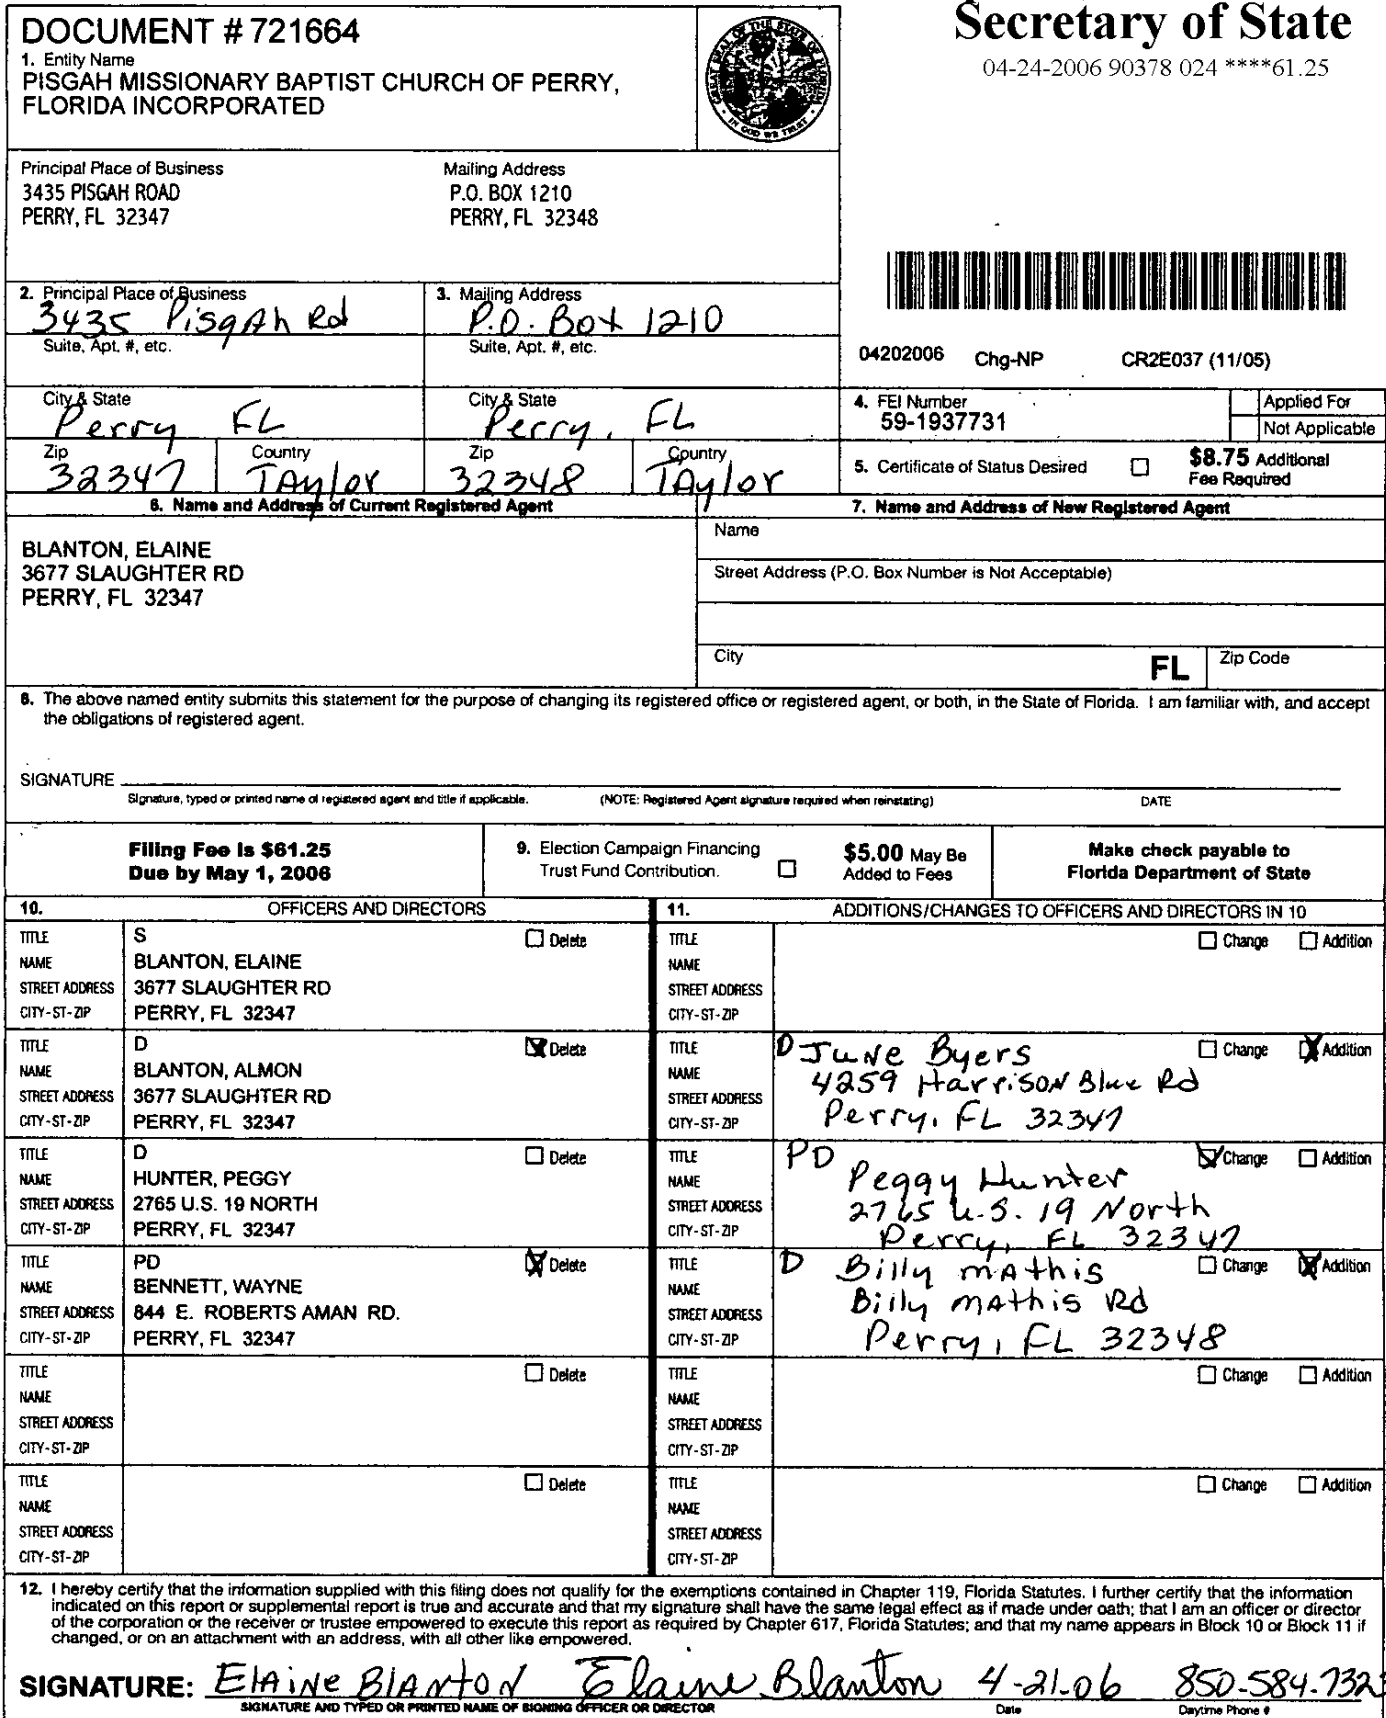 Secretary of State
04-24-2006 90378 024 ****61.25
DOCUMENT # 721664
1. Entity Name
PISGAH MISSIONARY BAPTIST CHURCH OF PERRY,
FLORIDA INCORPORATED
GREAT SEAL OF THE STATE OF FLORIDA
IN GOD WE TRUST
Principal Place of Business
3435 PISGAH ROAD
PERRY, FL 32347
Mailing Address
P.O. BOX 1210
PERRY, FL 32348
2. Principal Place of Business
3435 Pisgah Rd
Suite, Apt. #, etc.
3. Mailing Address
P.O. Box 1210
Suite, Apt. #, etc.
04202006 Chg-NP CR2E037 (11/05)
City & State
Perry FL
City & State
Perry, FL
Zip
32347
Country
TAylor
Zip
32348
Country
TAylor
4. FEI Number
59-1937731
Applied For
Not Applicable
5. Certificate of Status Desired
$8.75 Additional
Fee Required
6. Name and Address of Current Registered Agent
BLANTON, ELAINE
3677 SLAUGHTER RD
PERRY, FL 32347
7. Name and Address of New Registered Agent
Name
Street Address (P.O. Box Number is Not Acceptable)
City
FL
Zip Code
8. The above named entity submits this statement for the purpose of changing its registered office or registered agent, or both, in the State of Florida. I am familiar with, and accept
the obligations of registered agent.
SIGNATURE
Signature, typed or printed name of registered agent and title if applicable. (NOTE: Registered Agent signature required when reinstating) DATE
Filing Fee is $61.25
Due by May 1, 2006
9. Election Campaign Financing
Trust Fund Contribution.
$5.00 May Be
Added to Fees
Make check payable to
Florida Department of State
10. OFFICERS AND DIRECTORS
TITLE S Delete
NAME BLANTON, ELAINE
STREET ADDRESS 3677 SLAUGHTER RD
CITY-ST-ZIP PERRY, FL 32347
TITLE D Delete
NAME BLANTON, ALMON
STREET ADDRESS 3677 SLAUGHTER RD
CITY-ST-ZIP PERRY, FL 32347
TITLE D Delete
NAME HUNTER, PEGGY
STREET ADDRESS 2765 U.S. 19 NORTH
CITY-ST-ZIP PERRY, FL 32347
TITLE PD Delete
NAME BENNETT, WAYNE
STREET ADDRESS 844 E. ROBERTS AMAN RD.
CITY-ST-ZIP PERRY, FL 32347
TITLE Delete
NAME
STREET ADDRESS
CITY-ST-ZIP
TITLE Delete
NAME
STREET ADDRESS
CITY-ST-ZIP
11. ADDITIONS/CHANGES TO OFFICERS AND DIRECTORS IN 10
TITLE Change Addition
NAME
STREET ADDRESS
CITY-ST-ZIP
TITLE D June Byers Change Addition
NAME 4259 Harrison Blue Rd
STREET ADDRESS Perry, FL 32347
CITY-ST-ZIP
TITLE PD Change Addition
NAME Peggy Hunter
STREET ADDRESS 2765 U.S. 19 North
CITY-ST-ZIP Perry, FL 32347
TITLE D Billy MAthis Change Addition
NAME Billy MAthis Rd
STREET ADDRESS Perry, FL 32348
CITY-ST-ZIP
TITLE Change Addition
NAME
STREET ADDRESS
CITY-ST-ZIP
TITLE Change Addition
NAME
STREET ADDRESS
CITY-ST-ZIP
12. I hereby certify that the information supplied with this filing does not qualify for the exemptions contained in Chapter 119, Florida Statutes. I further certify that the information
indicated on this report or supplemental report is true and accurate and that my signature shall have the same legal effect as if made under oath; that I am an officer or director
of the corporation or the receiver or trustee empowered to execute this report as required by Chapter 617, Florida Statutes; and that my name appears in Block 10 or Block 11 if
changed, or on an attachment with an address, with all other like empowered.
SIGNATURE: ElAiNe BlANtoN Elaine Blanton 4-21-06 850-584-732
SIGNATURE AND TYPED OR PRINTED NAME OF SIGNING OFFICER OR DIRECTOR Date Daytime Phone #